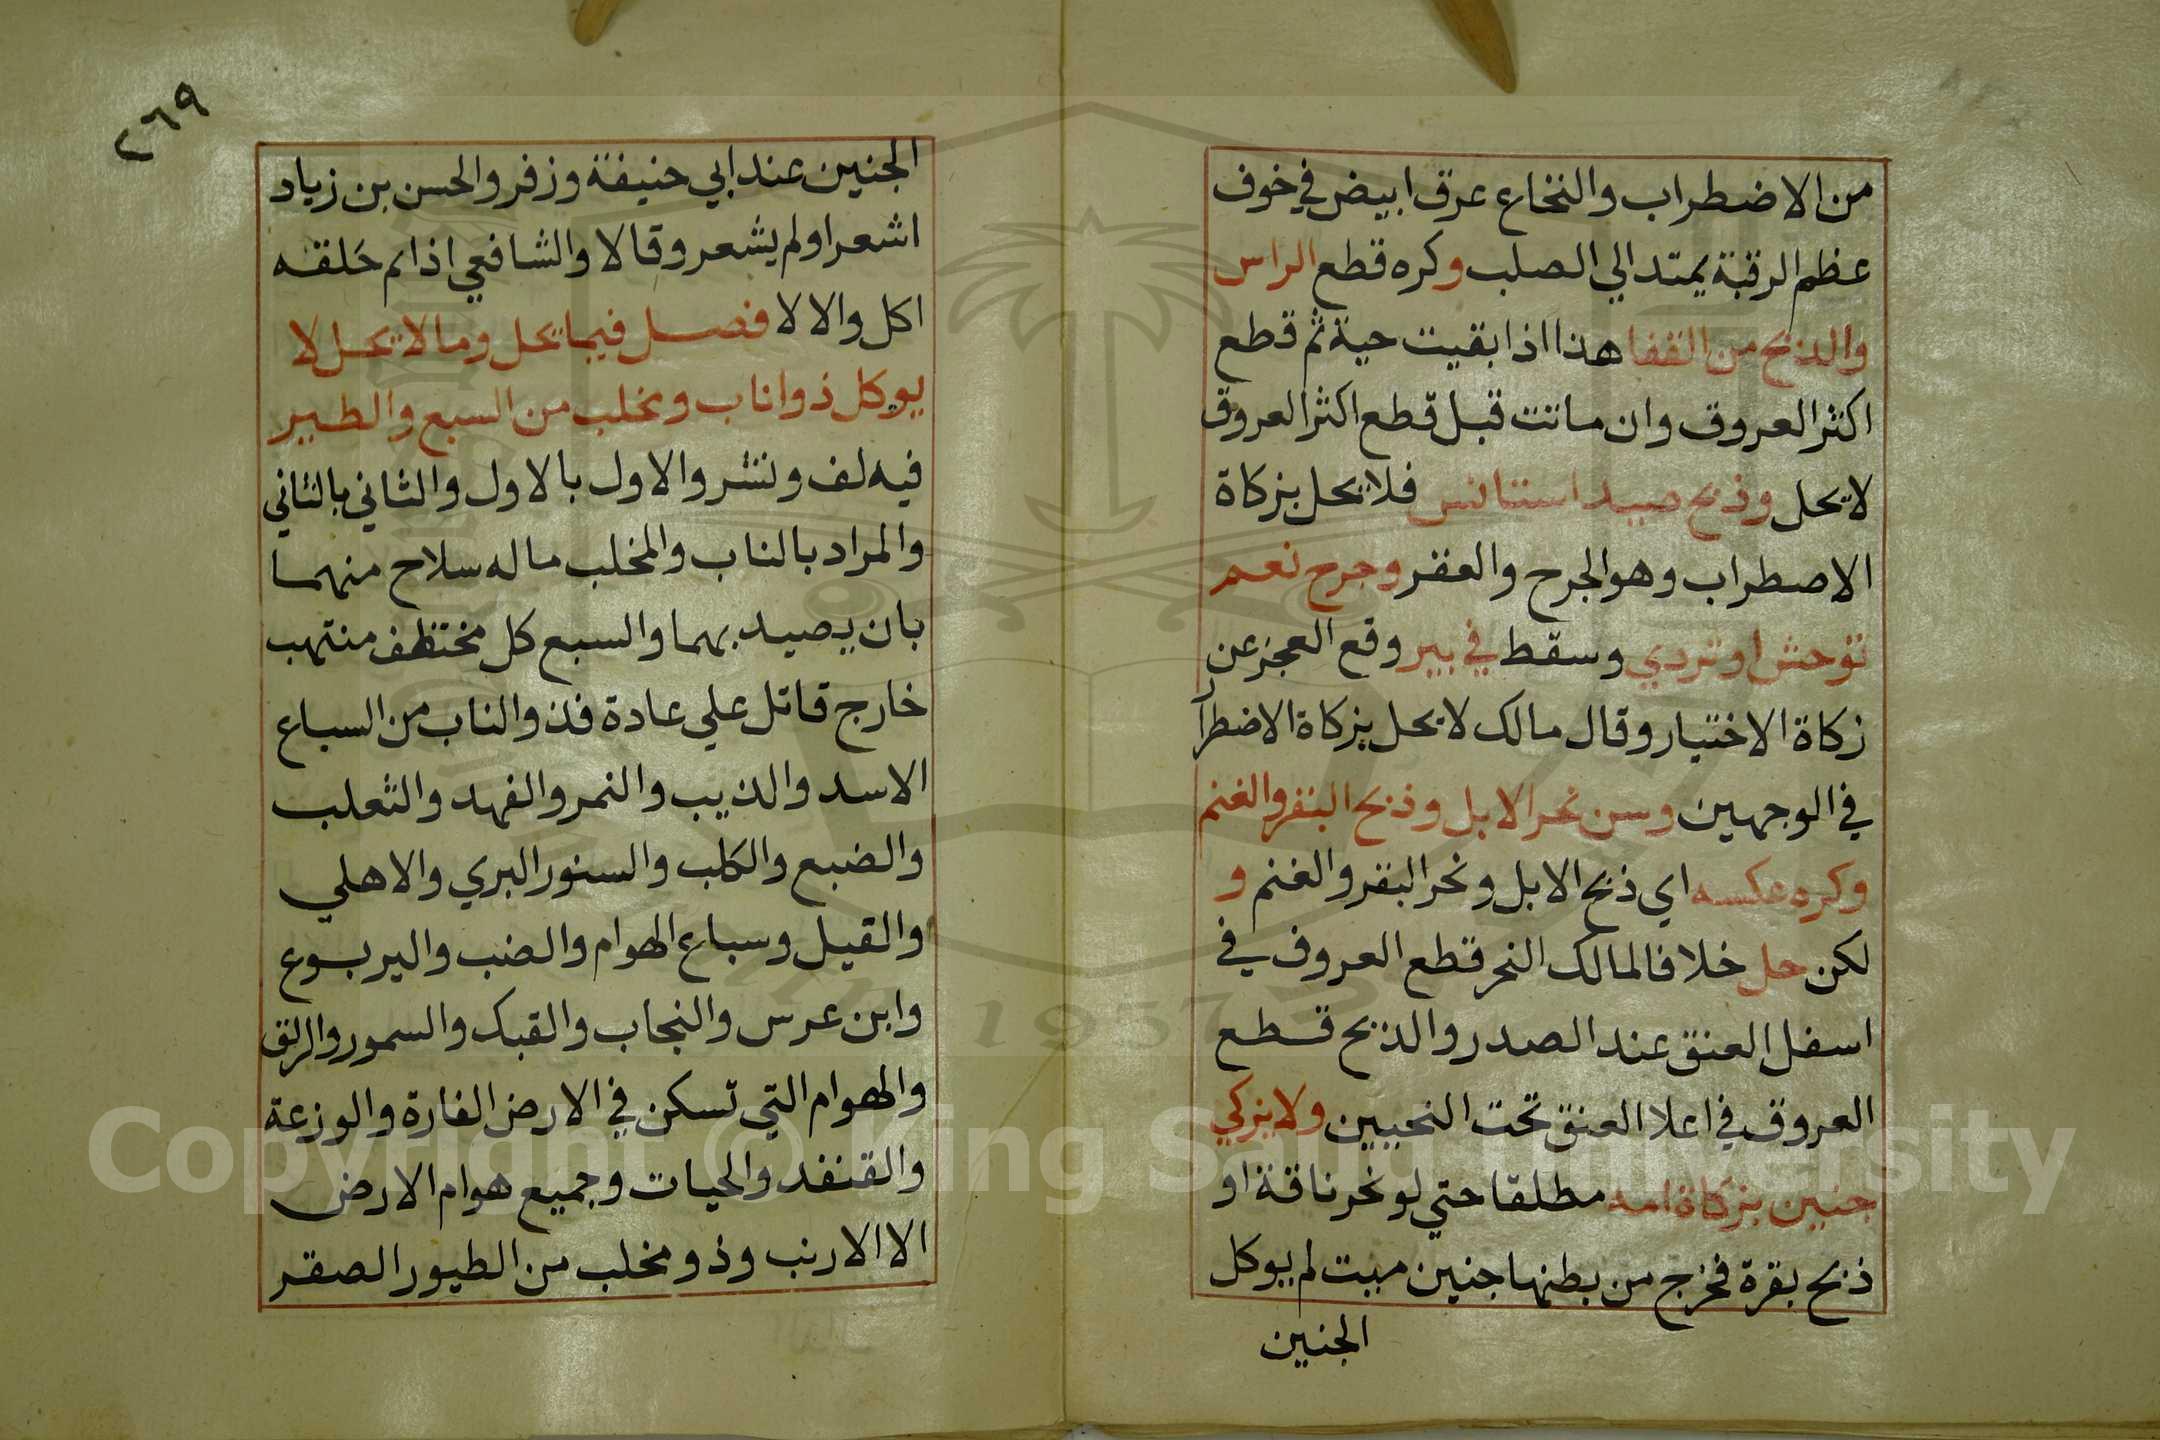 من الاضطراب والنخاع عرق ابيض في خوف
عظم الرقبة يمتد الي الصلب وكره قطع الراس
والذبح من القفا هذا اذا بقيت حية ثم قطع
اكثر العروق وان ماتت قبل قطع اكثر العروق
لا يحل وذبح صيد استانس فلا يحل بزكاة
الاصطراب وهو الجرح والعقر وجرح نعم
توحش او تردي وسقط في بير وقع العجز عن
زكاة الاختيار وقال مالك لا يحل بزكاة الاضطرا
في الوجهين وسن نحر الابل وذبح البقر والغنم
وكره عكسه اي ذبح الابل ونحر البقر والغنم و
لكن حل خلافا لمالك النحر قطع العروق في
اسفل العنق عند الصدر والذبح قطع
العروق في اعلا العنق تحت النحيين ولا يزكي
جنين بزكاة امه مطلقا حتي لو نحر ناقة او
ذبح بقرة فخرج من بطنها جنين ميت لم يوكل
الجنين
٢٦٩
الجنين عند ابي حنيفة وزفر والحسن بن زياد
اشعر او لم يشعر وقالا والشافعي اذا تم خلقه
اكل والا لا فصل فيما يحل وما لا يحل لا
يوكل ذو اناب ومخلب من السبع والطير
فيه لف ونشر والاول بالاول والثاني بالثاني
والمراد بالناب والمخلب ما له سلاح منهما
بان يصيد بهما والسبع كل مختطف منتهب
خارج قاتل علي عادة فذو الناب من السباع
الاسد والذيب والنمر والفهد والثعلب
والضبع والكلب والسنور البري والاهلي
والفيل وسباع الهوام والضب واليربوع
وابن عرس والنجاب والفنك والسمور والزلق
والهوام التي تسكن في الارض الفارة والوزعة
والقنفد والحيات وجميع هوام الارض
الا الارنب وذو مخلب من الطيور الصقر
Copyright © King Saud University
1957